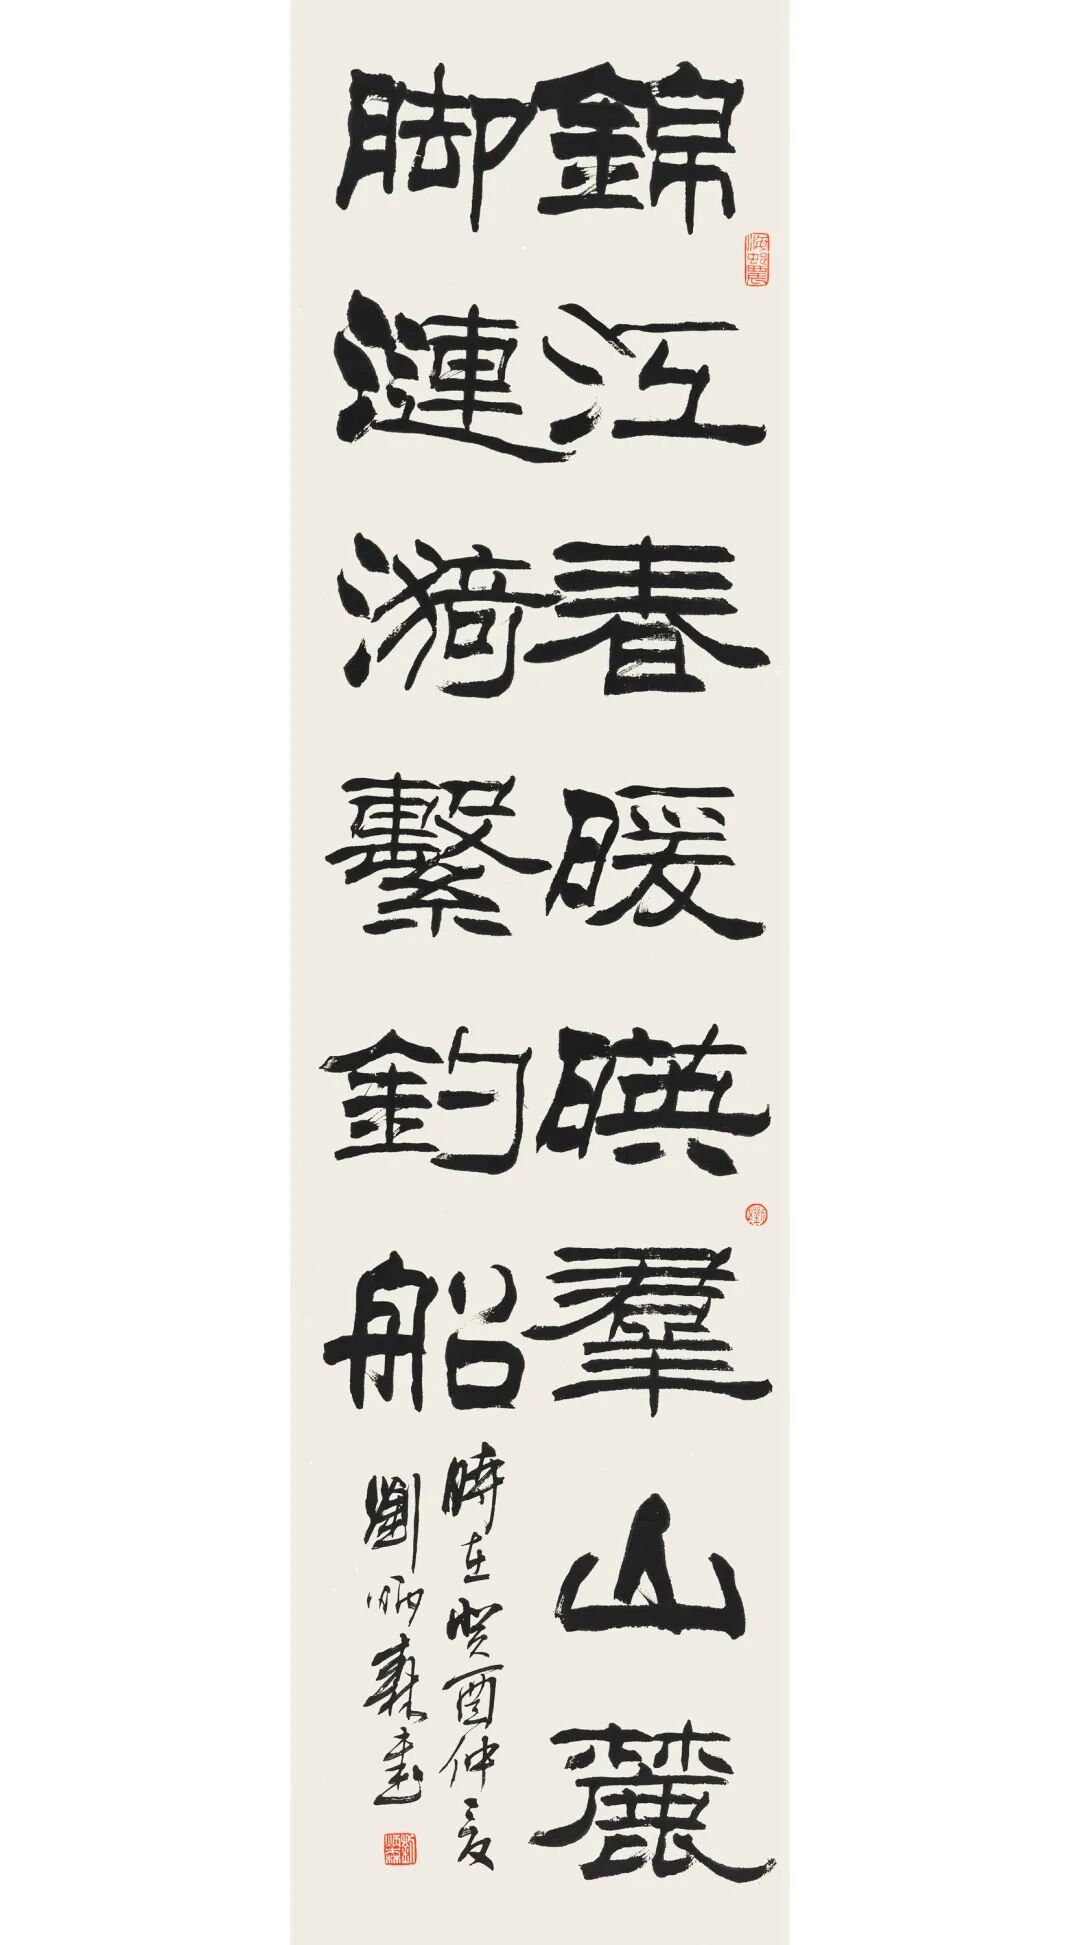 錦江春暖暎羣山麓
脚漣漪繫釣船
時在癸酉仲夏
劉炳森書
劉炳森